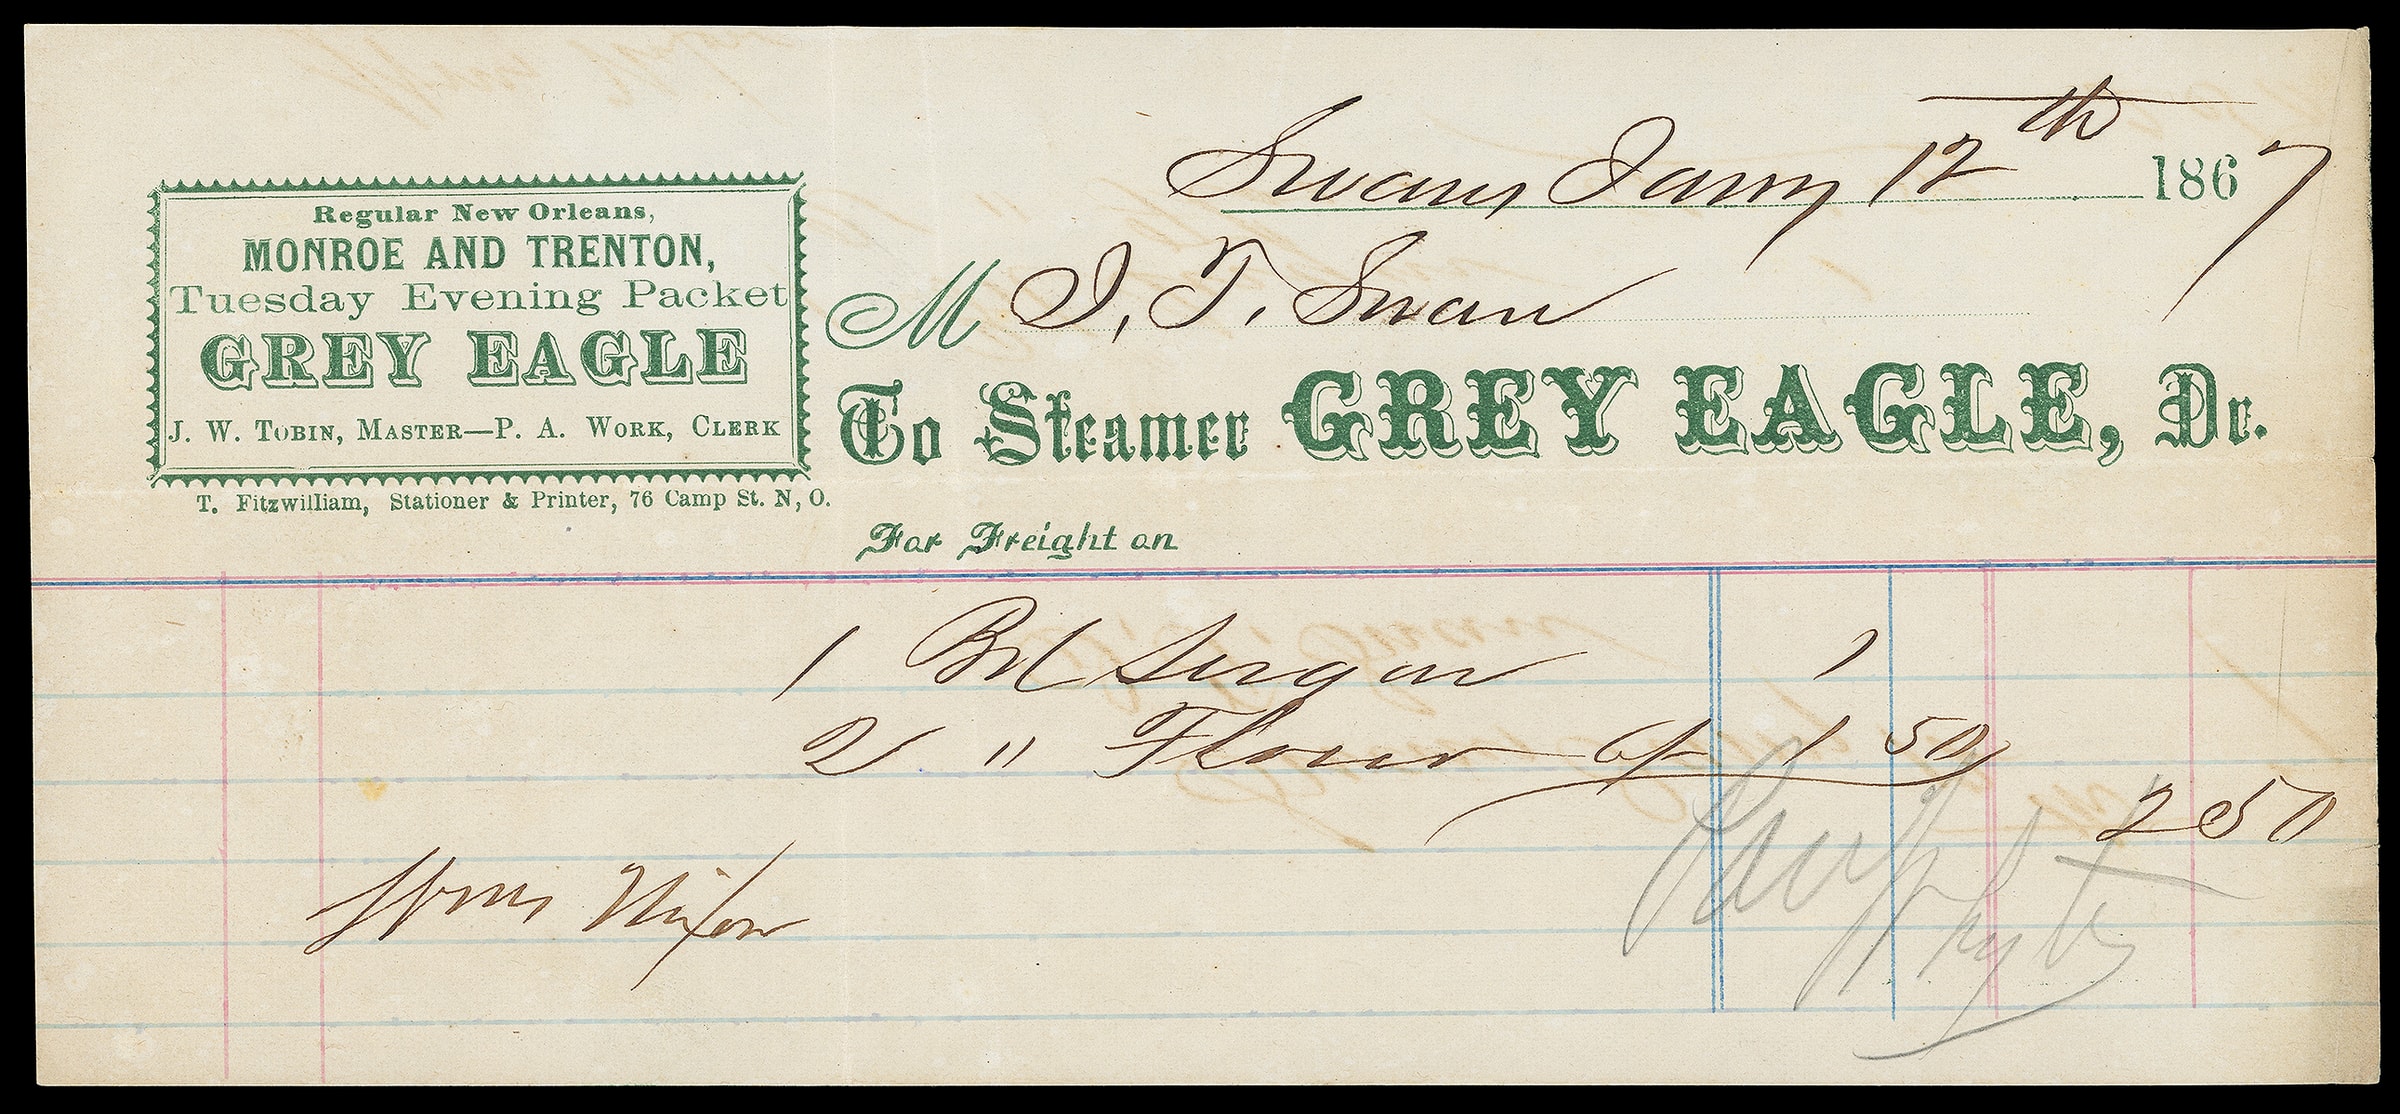 Swans Jany 12th 1867
Regular New Orleans,
MONROE AND TRENTON,
Tuesday Evening Packet
GREY EAGLE
J. W. TOBIN, MASTER—P. A. WORK, CLERK
T. Fitzwilliam, Stationer & Printer, 76 Camp St. N, O.
M J. T. Swan
To Steamer GREY EAGLE, Dr.
For Freight on
1 Bbl Sugar 1
2 " Flour 1 50
2 50
Nixon